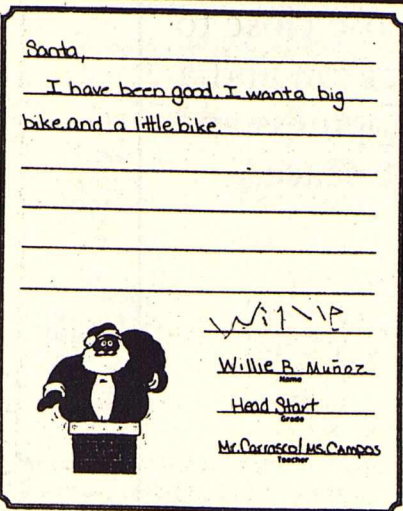 Santa,
I have been good. I want a big
bike and a little bike.
Willie
Willie B. Muñoz
Name
Head Start
Grade
Mr. Carrasco/Ms. Campos
Teacher